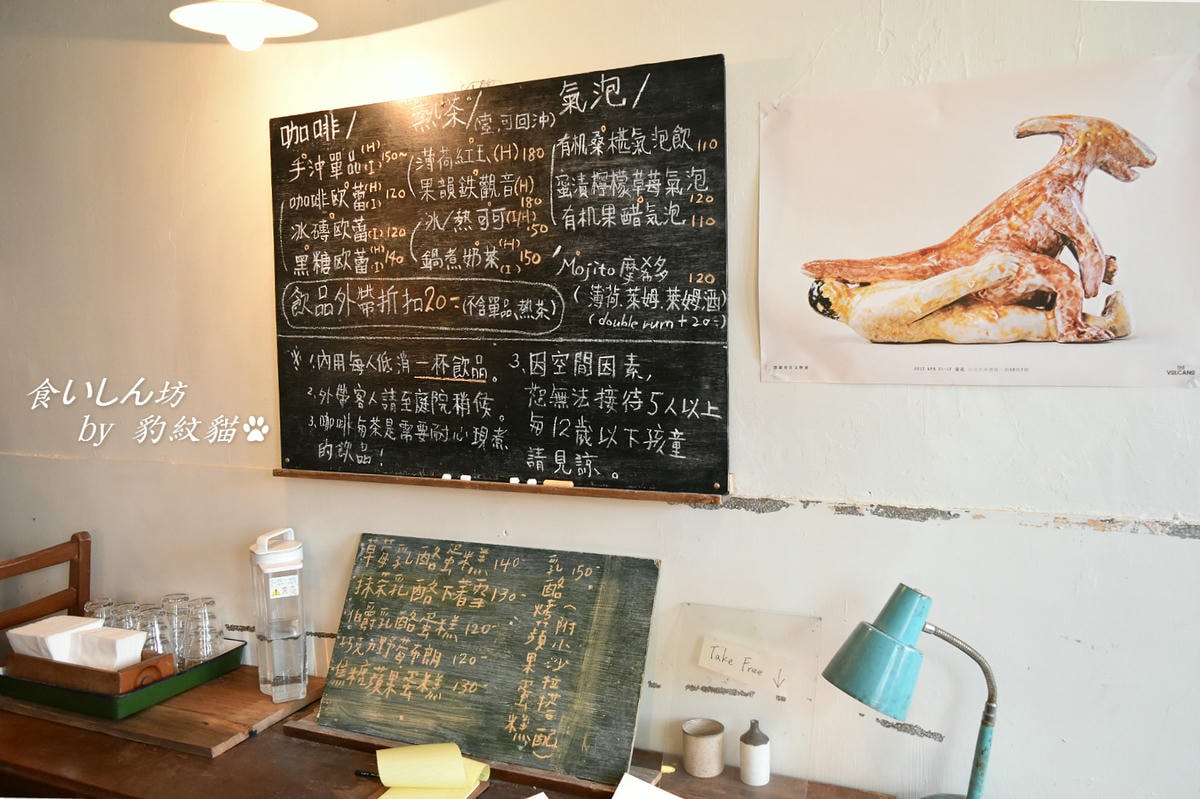 咖啡/
手沖單品(H)(I)150~
咖啡歐蕾(H)(I)120
冰磚歐蕾(I)120
黑糖歐蕾(H)(I)140
熱茶/(壺,可回沖)
薄荷紅玉(H)180
果韻鉄觀音(H)180
冰/熱可可(I)(H)150
鍋煮奶茶(H)(I)150
氣泡/
有机桑椹氣泡飲110
蜜漬檸檬草莓氣泡120
有机果醋氣泡110
Mojito 摩希多120
(薄荷.萊姆.萊姆酒)
(double rum + 20-)
飲品外帶折扣20-(不含單品、熱茶)
※ 1.內用每人低消一杯飲品。
2.外帶客人請至庭院稍候。
3.咖啡與茶是需要耐心現煮
的飲品!
3.因空間因素,
恕無法接待5人以上
每12歲以下孩童
請見諒、。
食いしん坊
by 豹紋貓
草莓乳酪蛋糕140-
抹茶乳酪下著雪130-
伯爵乳酪蛋糕120-
巧克力香蕉布朗120-
焦糖蘋果蛋糕130-
乳酪烤蘋果蜜糕150-
(附小沙拉搭配)
Take Free ↓
THE
VULCANS